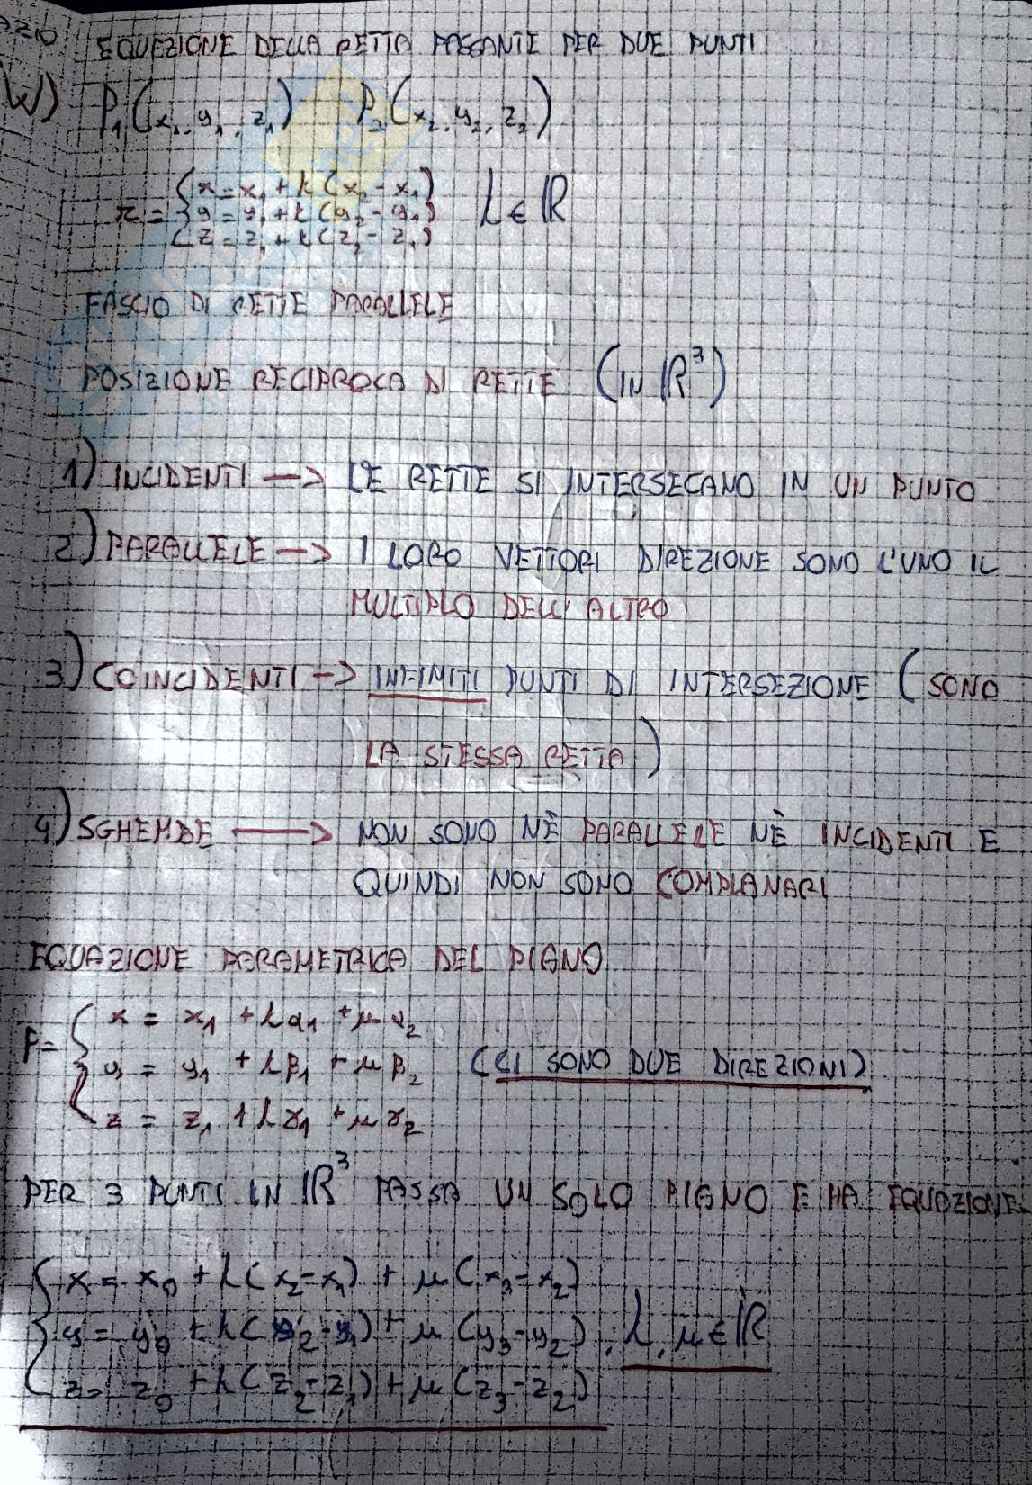 EQUAZIONE DELLA RETTA PASSANTE PER DUE PUNTI
P₁(x₁, y₁, z₁) P₂(x₂, y₂, z₂)
r = { x = x₁ + k(x₂ - x₁)
y = y₁ + k(y₂ - y₁) k ∈ ℝ
z = z₁ + k(z₂ - z₁)
FASCIO DI RETTE PARALLELE
POSIZIONE RECIPROCA DI RETTE (IN ℝ³)
1) INCIDENTI —> LE RETTE SI INTERSECANO IN UN PUNTO
2) PARALLELE —> I LORO VETTORI DIREZIONE SONO L'UNO IL
MULTIPLO DELL'ALTRO
3) COINCIDENTI —> INFINITI PUNTI DI INTERSEZIONE (SONO
LA STESSA RETTA)
4) SGHEMBE —> NON SONO NÈ PARALLELE NÈ INCIDENTI E
QUINDI NON SONO COMPLANARI
EQUAZIONE PARAMETRICA DEL PIANO
P = { x = x₁ + λα₁ + μα₂
y = y₁ + λβ₁ + μβ₂ (CI SONO DUE DIREZIONI)
z = z₁ + λγ₁ + μγ₂
PER 3 PUNTI IN ℝ³ PASSA UN SOLO PIANO E HA EQUAZIONE:
{ x = x₀ + λ(x₂ - x₁) + μ(x₃ - x₂)
y = y₀ + λ(y₂ - y₁) + μ(y₃ - y₂), λ, μ ∈ ℝ
z = z₀ + λ(z₂ - z₁) + μ(z₃ - z₂)